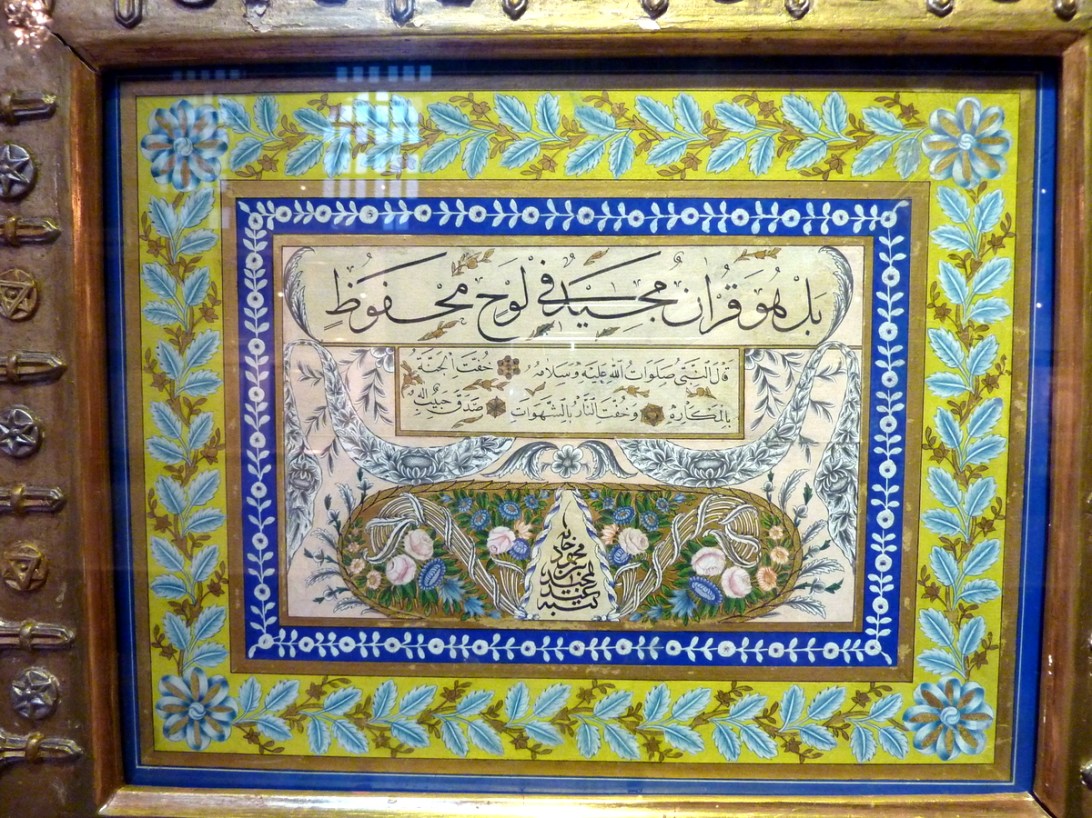 بَلْ هُوَ قُرْاٰنٌ مَجيدٌ في لَوْحٍ مَحْفُوظٍ
قَالَ النَّبِيُّ صَلَوَاتُ اللهِ عَلَيْهِ وَسَلَامُهُ حُفَّتِ الْجَنَّةُ
بِالْمَكَارِهِ وَحُفَّتِ النَّارُ بِالشَّهَوَاتِ صَدَقَ حَبِيبُ اللهِ
كتبه عبد المجيد بن محمود خان